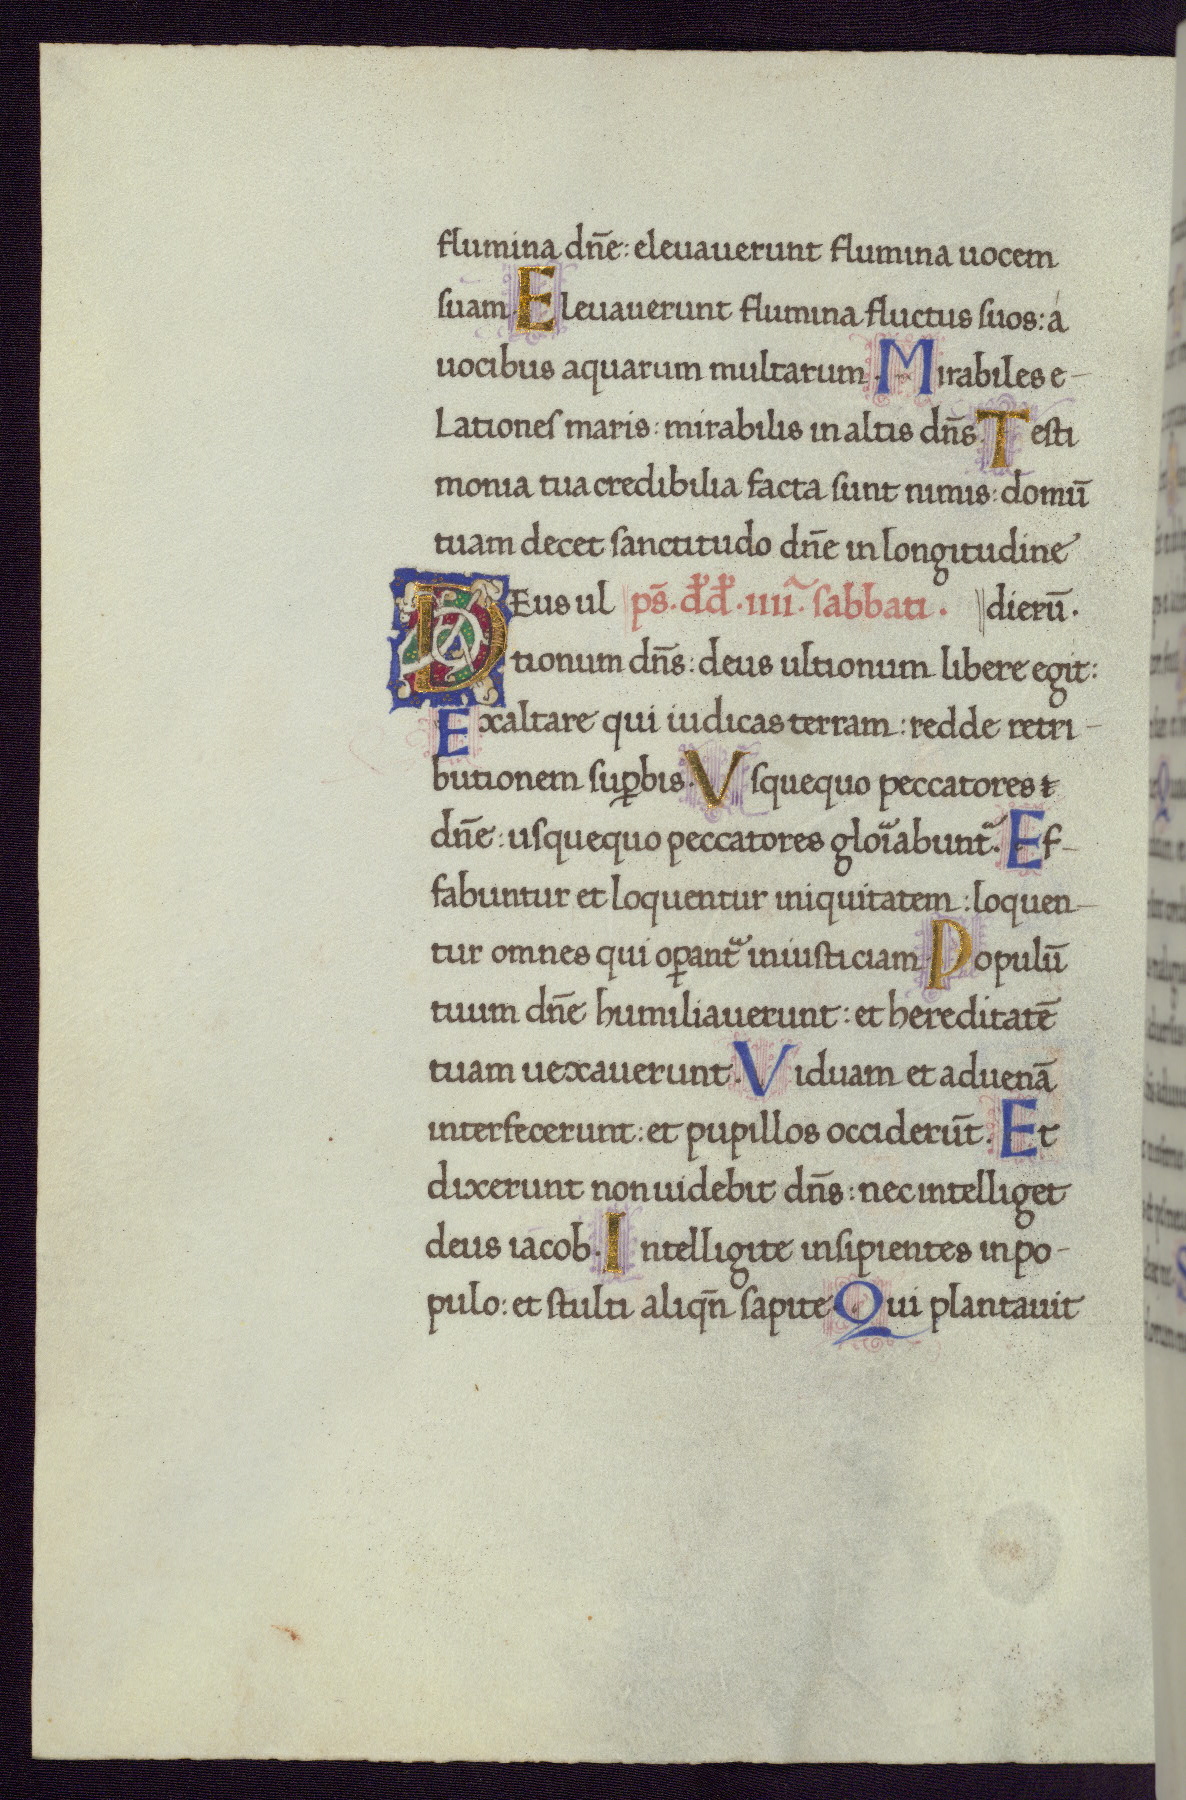 flumina dn̄e: eleuauerunt flumina uocem
suam. Eleuauerunt flumina fluctus suos: a
uocibus aquarum multarum. Mirabiles e-
lationes maris: mirabilis in altis dn̄s. Testi
monia tua credibilia facta sunt nimis: domū
tuam decet sanctitudo dn̄e in longitudine
DEus ul ps̄. dd. iiii. sabbati. dierū.
tionum dn̄s: deus ultionum libere egit:
Exaltare qui iudicas terram: redde retri-
butionem suꝑbis. Vsquequo peccatores
dn̄e: usquequo peccatores gloriabunt᷑. Ef-
fabuntur et loquentur iniquitatem: loquen-
tur omnes qui oꝑant᷑ iniusticiam. Populū
tuum dn̄e humiliauerunt: et hereditatē
tuam uexauerunt. Viduam et aduenā
interfecerunt: et pupillos occiderūt. Et
dixerunt non uidebit dn̄s: nec intelliget
deus iacob. Intelligite insipientes in po-
pulo: et stulti aliqn̄ sapite. Qui plantauit